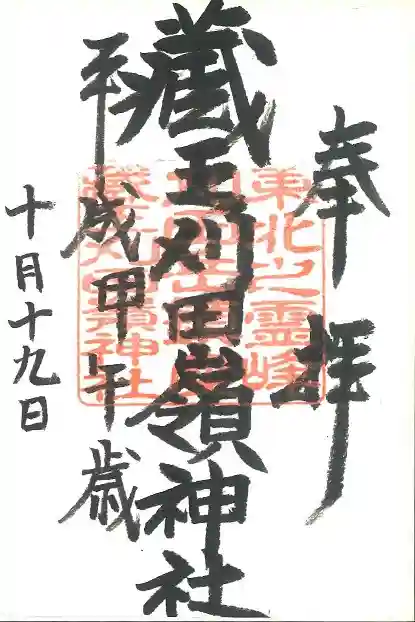 奉拝
東北之霊峰
藏王刈田嶺神社
藏王刈田嶺神社
平成甲午歳
十月十九日